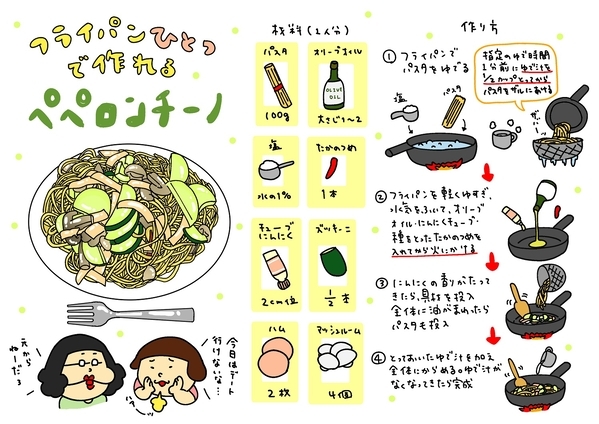 フライパンひとつ
で作れる
ペペロンチーノ
今日はデート
行けないな…
元から
ねーだろ
材料(2人分)
パスタ
100g
オリーブオイル
OLIVE
OIL
大さじ1〜2
塩
水の1%
たかのつめ
1本
チューブ
にんにく
2cm位
ズッキーニ
1/2本
ハム
2枚
マッシュルーム
4個
作り方
① フライパンで
パスタをゆでる
指定のゆで時間
1分前にゆで汁を
1/2カップとってから
パスタをザルにあける
塩
パスタ
ザバー
② フライパンを軽くゆすぎ、
水気をふいて、オリーブ
オイル・にんにくチューブ・
種をとったたかのつめを
入れてから火にかける
③ にんにくの香りがたって
きたら、具材を投入
全体に油がまわったら
パスタも投入
④ とっておいたゆで汁を加え
全体にからめる。ゆで汁が
なくなってきたら完成